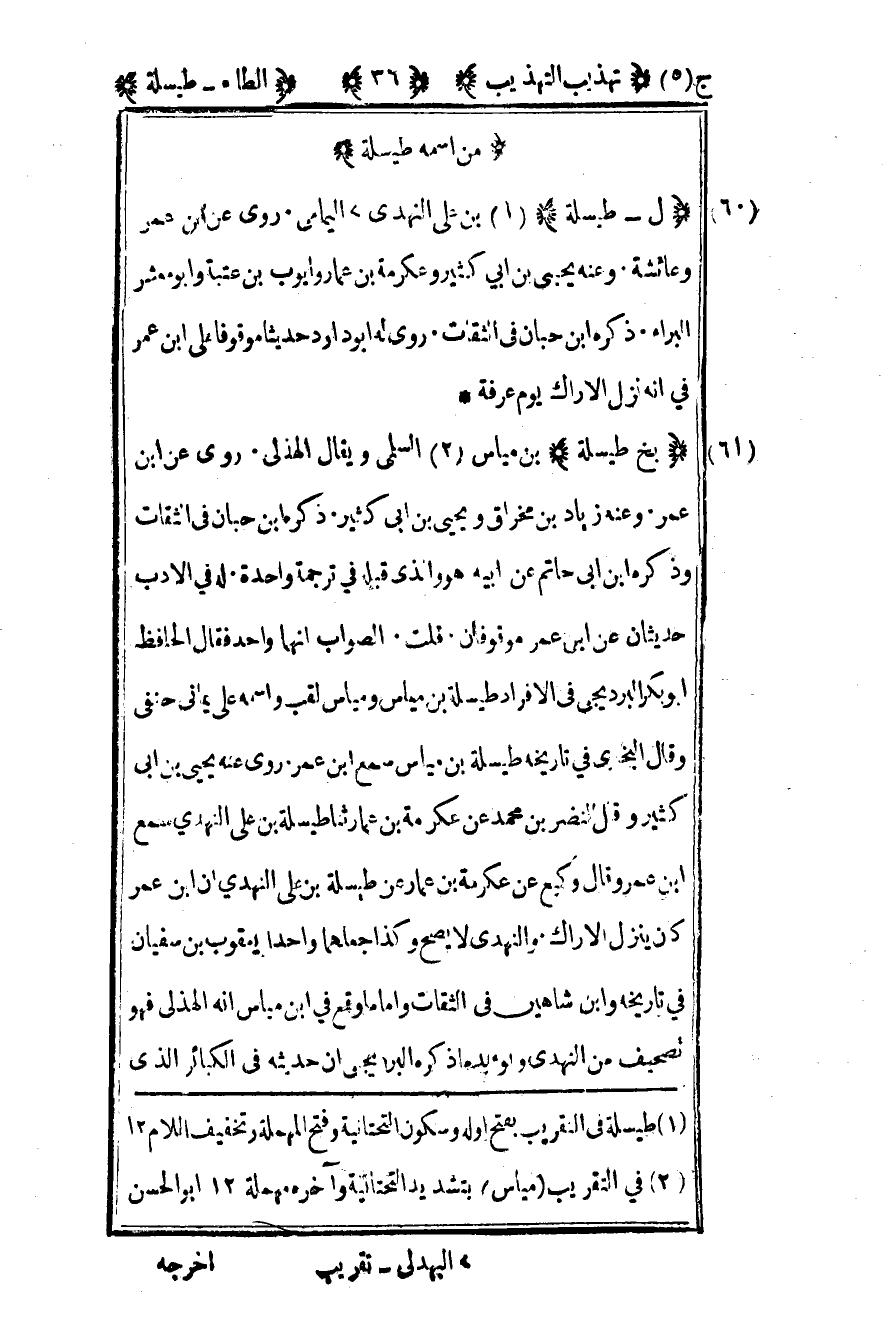 ج(٥) ﴿ تهذيب التهذيب ﴾ ﴿ ٣٦ ﴾ ﴿ الطاء ـ طيسلة ﴾
﴿ من اسمه طيسلة ﴾
(٦٠) ﴿ ل ـ طيسلة ﴾ (١) بن علي النهدى > اليمامي ٠ روى عن ابن عمر
وعائشة ٠ وعنه يحيى بن ابي كثير وعكرمة بن عمار وايوب بن عتبة وابو معشر
البراء ٠ ذكره ابن حبان في الثقات ٠ روى له ابو داود حديثا موقوفا على ابن عمر
في انه نزل الاراك يوم عرفة *
(٦١) ﴿ بخ طيسلة ﴾ بن مياس (٢) السلمى ويقال الهذلى ٠ روى عن ابن
عمر ٠ وعنه زياد بن مخراق ويحيى بن ابى كثير ٠ ذكره ابن حبان فى الثقات
وذكره ابن ابى حاتم عن ابيه هو والذى قبله في ترجمة واحدة ٠ له في الادب
حديثان عن ابن عمر موقوفان ٠ قلت ٠ الصواب انهما واحد فقال الحافظ
ابو بكر البرديجى فى الافراد طيسلة بن مياس ومياس لقب واسمه على يمانى حنفى
وقال البخارى في تاريخه طيسلة بن مياس سمع ابن عمر ٠ روى عنه يحيى بن ابى
كثير وقال النضر بن محمد عن عكرمة بن عمار ثنا طيسلة بن على النهدي سمع
ابن عمر وقال وكيع عن عكرمة بن عمار عن طيسلة بن على النهدي ان ابن عمر
كان ينزل الاراك ٠ والنهدى لا يصح وكذا جعلهما واحدا يعقوب بن سفيان
في تاريخه وابن شاهين فى الثقات واما ما وقع في ابن مياس انه الهذلى فهو
تصحيف من النهدى ويؤيده ما ذكره البرديجى ان حديثه فى الكبائر الذى
(١) طيسلة فى التقريب بفتح اوله وسكون التحتانية وفتح المهملة وتخفيف اللام ١٢
(٢) في التقريب (مياس) بتشديد التحتانية وآخره مهملة ١٢ ابو الحسن
> البهدلى ـ تقريب اخرجه